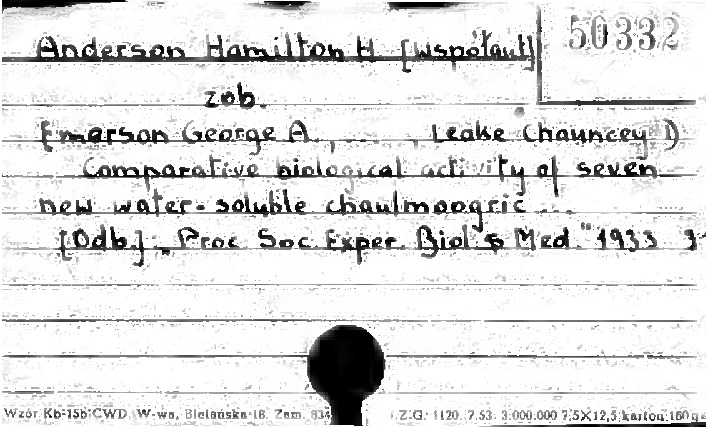 50332
Anderson Hamilton H. [współaut]
zob.
Emerson George A., ... , Leake Chauncey D
Comparative biological activity of seven
new water-soluble chaulmoogric ...
[Odb.] „Proc Soc. Exper. Biol & Med." 1933
Wzór Kb-15b CWD, W-wa, Bielańska 18. Zam. 834
Z.G. 1120. 7.53. 3.000.000 7,5X12,5 karton 160 g